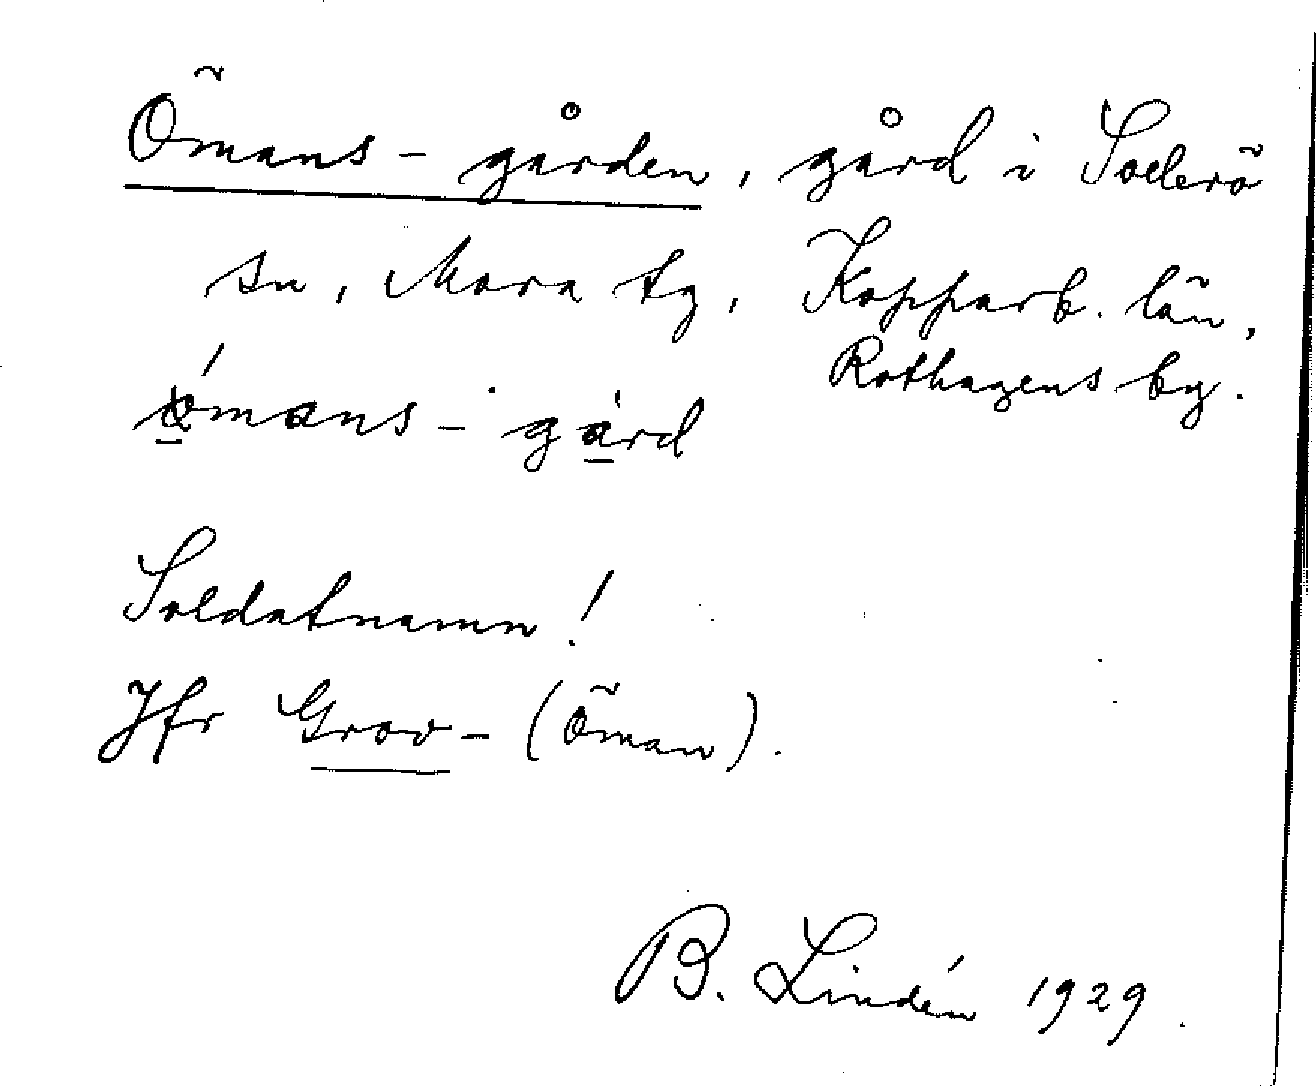 Ömans-gården, gård i Sollerö
sn, Mora tg, Kopparb. län,
Rothagens by.
ömans-gård
Soldatnamn!
Jfr Grov- (Öman).
B. Lindén 1929.